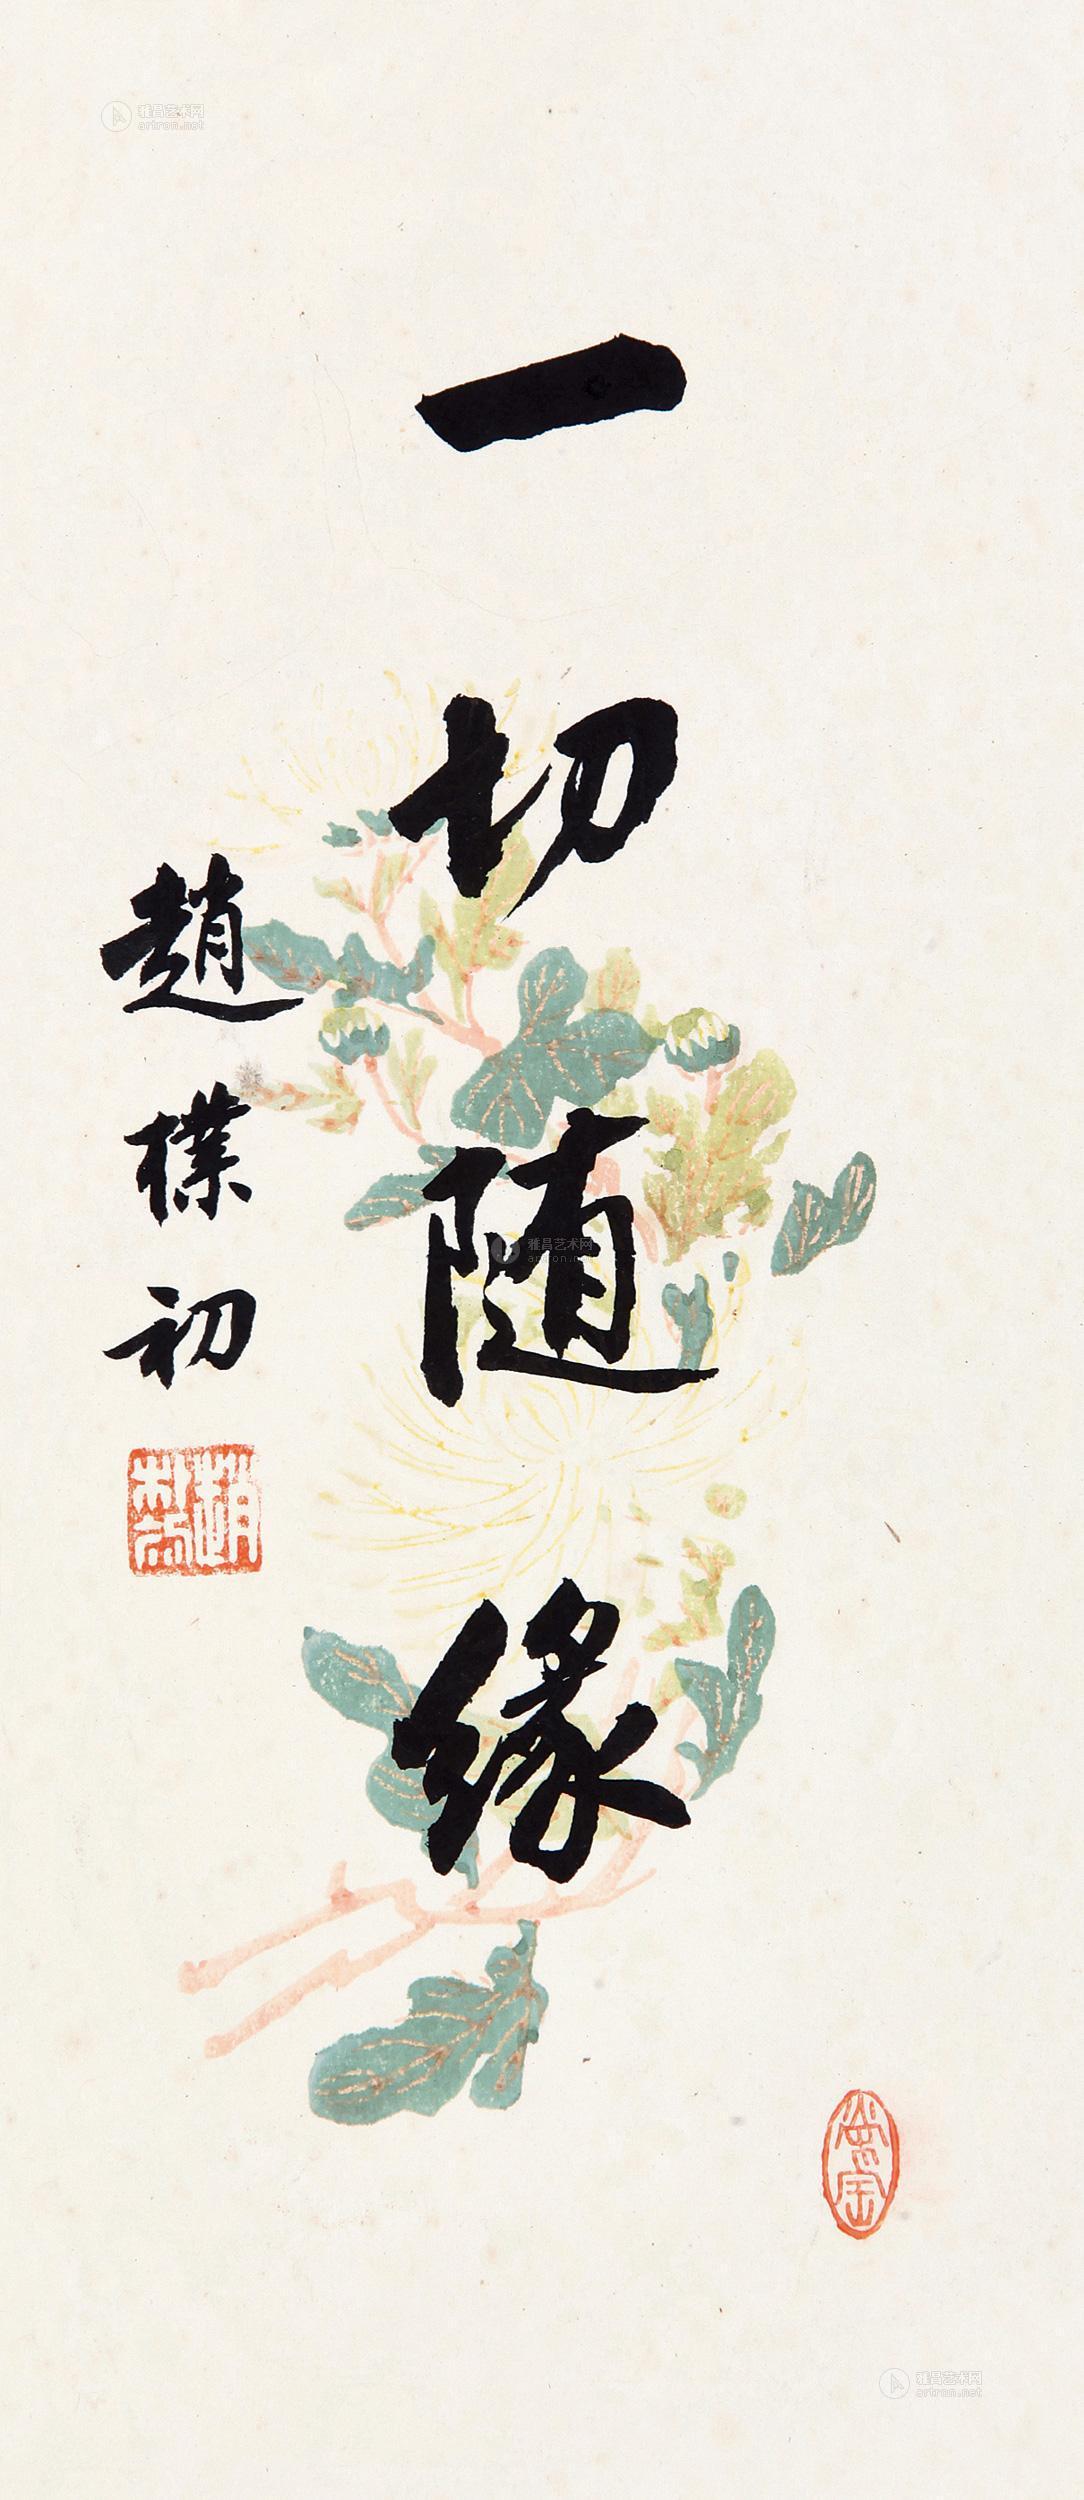 一切随缘
趙樸初
雅昌艺术网
artron.net
雅昌艺术网
artron.net
雅昌艺术网
artron.net